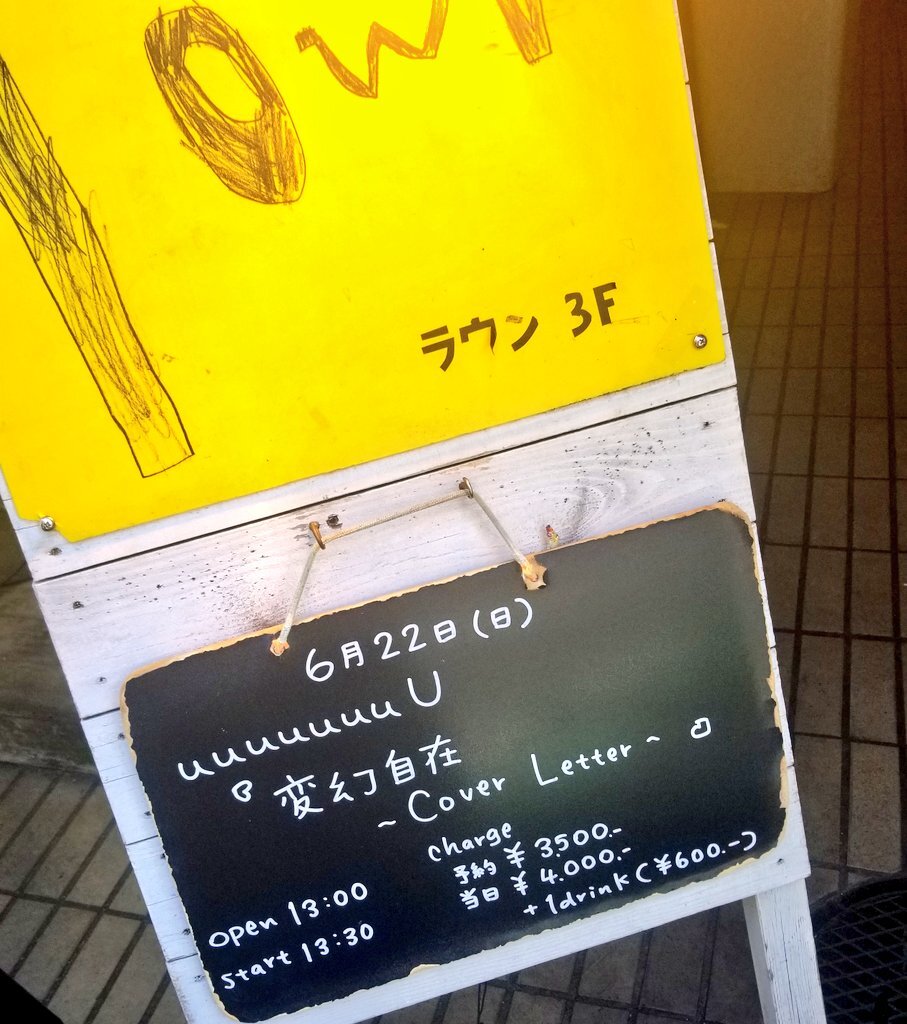 lown
ラウン 3F
6月22日(日)
uuuuuuuU
『変幻自在
~Cover Letter~』
charge
予約 ¥3500.-
当日 ¥4.000.-
+1drink(¥600.-)
open 13:00
start 13:30